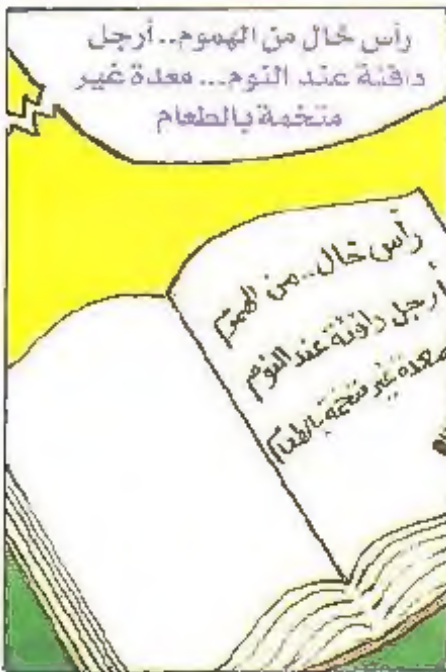 رأس خال من الهموم..أرجل
دافئة عند النوم...معدة غير
متخمة بالطعام
رأس خال..من الهموم
أرجل دافئة عند النوم
معدة غير متخمة بالطعام